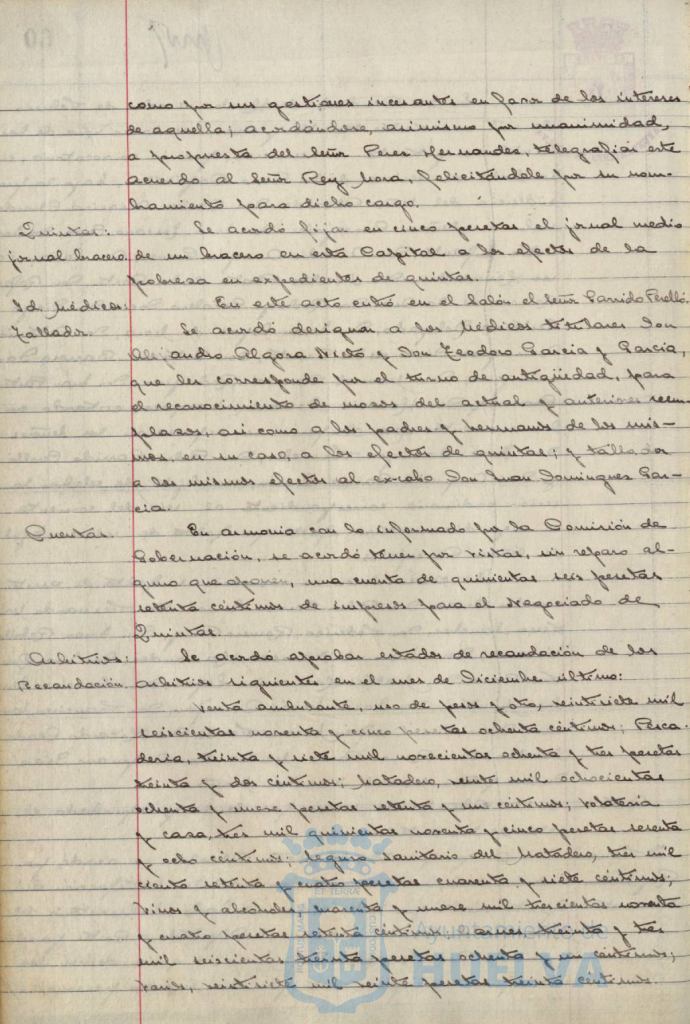 como por sus gestiones incesantes en favor de los intereses
de aquella; acordándose, asimismo por unanimidad,
a propuesta del Señor Perez Hernandez, telegrafiar este
acuerdo al Señor Rey Mora, felicitándole por su nom-
bramiento para dicho cargo.
Quintas: Se acordó fijar en cinco pesetas el jornal medio
jornal bracero. de un bracero en esta Capital a los efectos de la
pobreza en expedientes de quintas.
Id. Médicos: En este acto entró en el Salón el Señor Garrido Perelló.
Tallador. Se acordó designar a los Médicos titulares Don
Alejandro Algora Nieto y Don Teodoro Garcia y Garcia,
que les corresponde por el turno de antigüedad, para
el reconocimiento de mozos del actual y anteriores reem-
plazos, asi como a los padres y hermanos de los mis-
mos, en su caso, a los efectos de quintas; y tallador
a los mismos efectos al ex-cabo Don Juan Dominguez Gar-
cia.
Cuentas. En armonia con lo informado por la Comisión de
Gobernación, se acordó tener por vistas, sin reparo al-
guno que oponer, una cuenta de quinientas seis pesetas
setenta céntimos de impresos para el Negociado de
Quintas.
Arbitrios: Se acordó aprobar estados de recaudación de los
Recaudación. arbitrios siguientes en el mes de Diciembre último:
Venta ambulante, uso de pesos y otro, veintisiete mil
seiscientas noventa y cinco pesetas ochenta céntimos; Pesca-
deria, treinta y siete mil novecientas ochenta y tres pesetas
treinta y dos céntimos; Matadero, veinte mil ochocientas
ochenta y nueve pesetas setenta y un céntimos; Volateria
y caza, tres mil quinientas noventa y cinco pesetas sesenta
y ocho céntimos; Seguro Sanitario del Matadero, tres mil
ciento setenta y cuatro pesetas cuarenta y siete céntimos;
Vinos y alcoholes, cuarenta y nueve mil trescientas noventa
y cuatro pesetas setenta céntimos; Carnes treinta y tres
mil seiscientas treinta pesetas ochenta y un céntimos;
Varios, veintisiete mil veinte pesetas treinta céntimos.
HUELVA